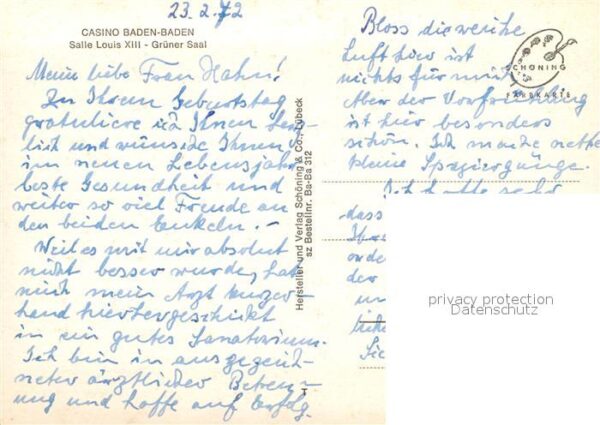 23.2.72
CASINO BADEN-BADEN
Salle Louis XIII - Grüner Saal
Meine liebe Frau Hahn!
Zu Ihrem Geburtstag
gratuliere ich Ihnen herz-
lich und wünsche Ihnen
im neuen Lebensjahr
beste Gesundheit und
weiter so viel Freude an
den beiden Enkeln. -
Weil es mit mir absolut
nicht besser wurde, hat
mich mein Arzt kurzer-
hand hierhergeschickt
in ein gutes Sanatorium.
Ich bin in ausgezeich-
neter ärztlicher Betreu-
ung und hoffe auf Erfolg.
Hersteller und Verlag Schöning & Co., Lübeck
sz Bestellnr. Ba-Ba 312
T
Bloss die weiche
Luft hier ist
nichts für mich
Aber der Vorfrühling
ist hier besonders
schön. Ich mache nette
kleine Spaziergänge.
Ich hatte sehr
dass
oder
der
un
Sie
SCHÖNING
FARBKARTE
privacy protection
Datenschutz